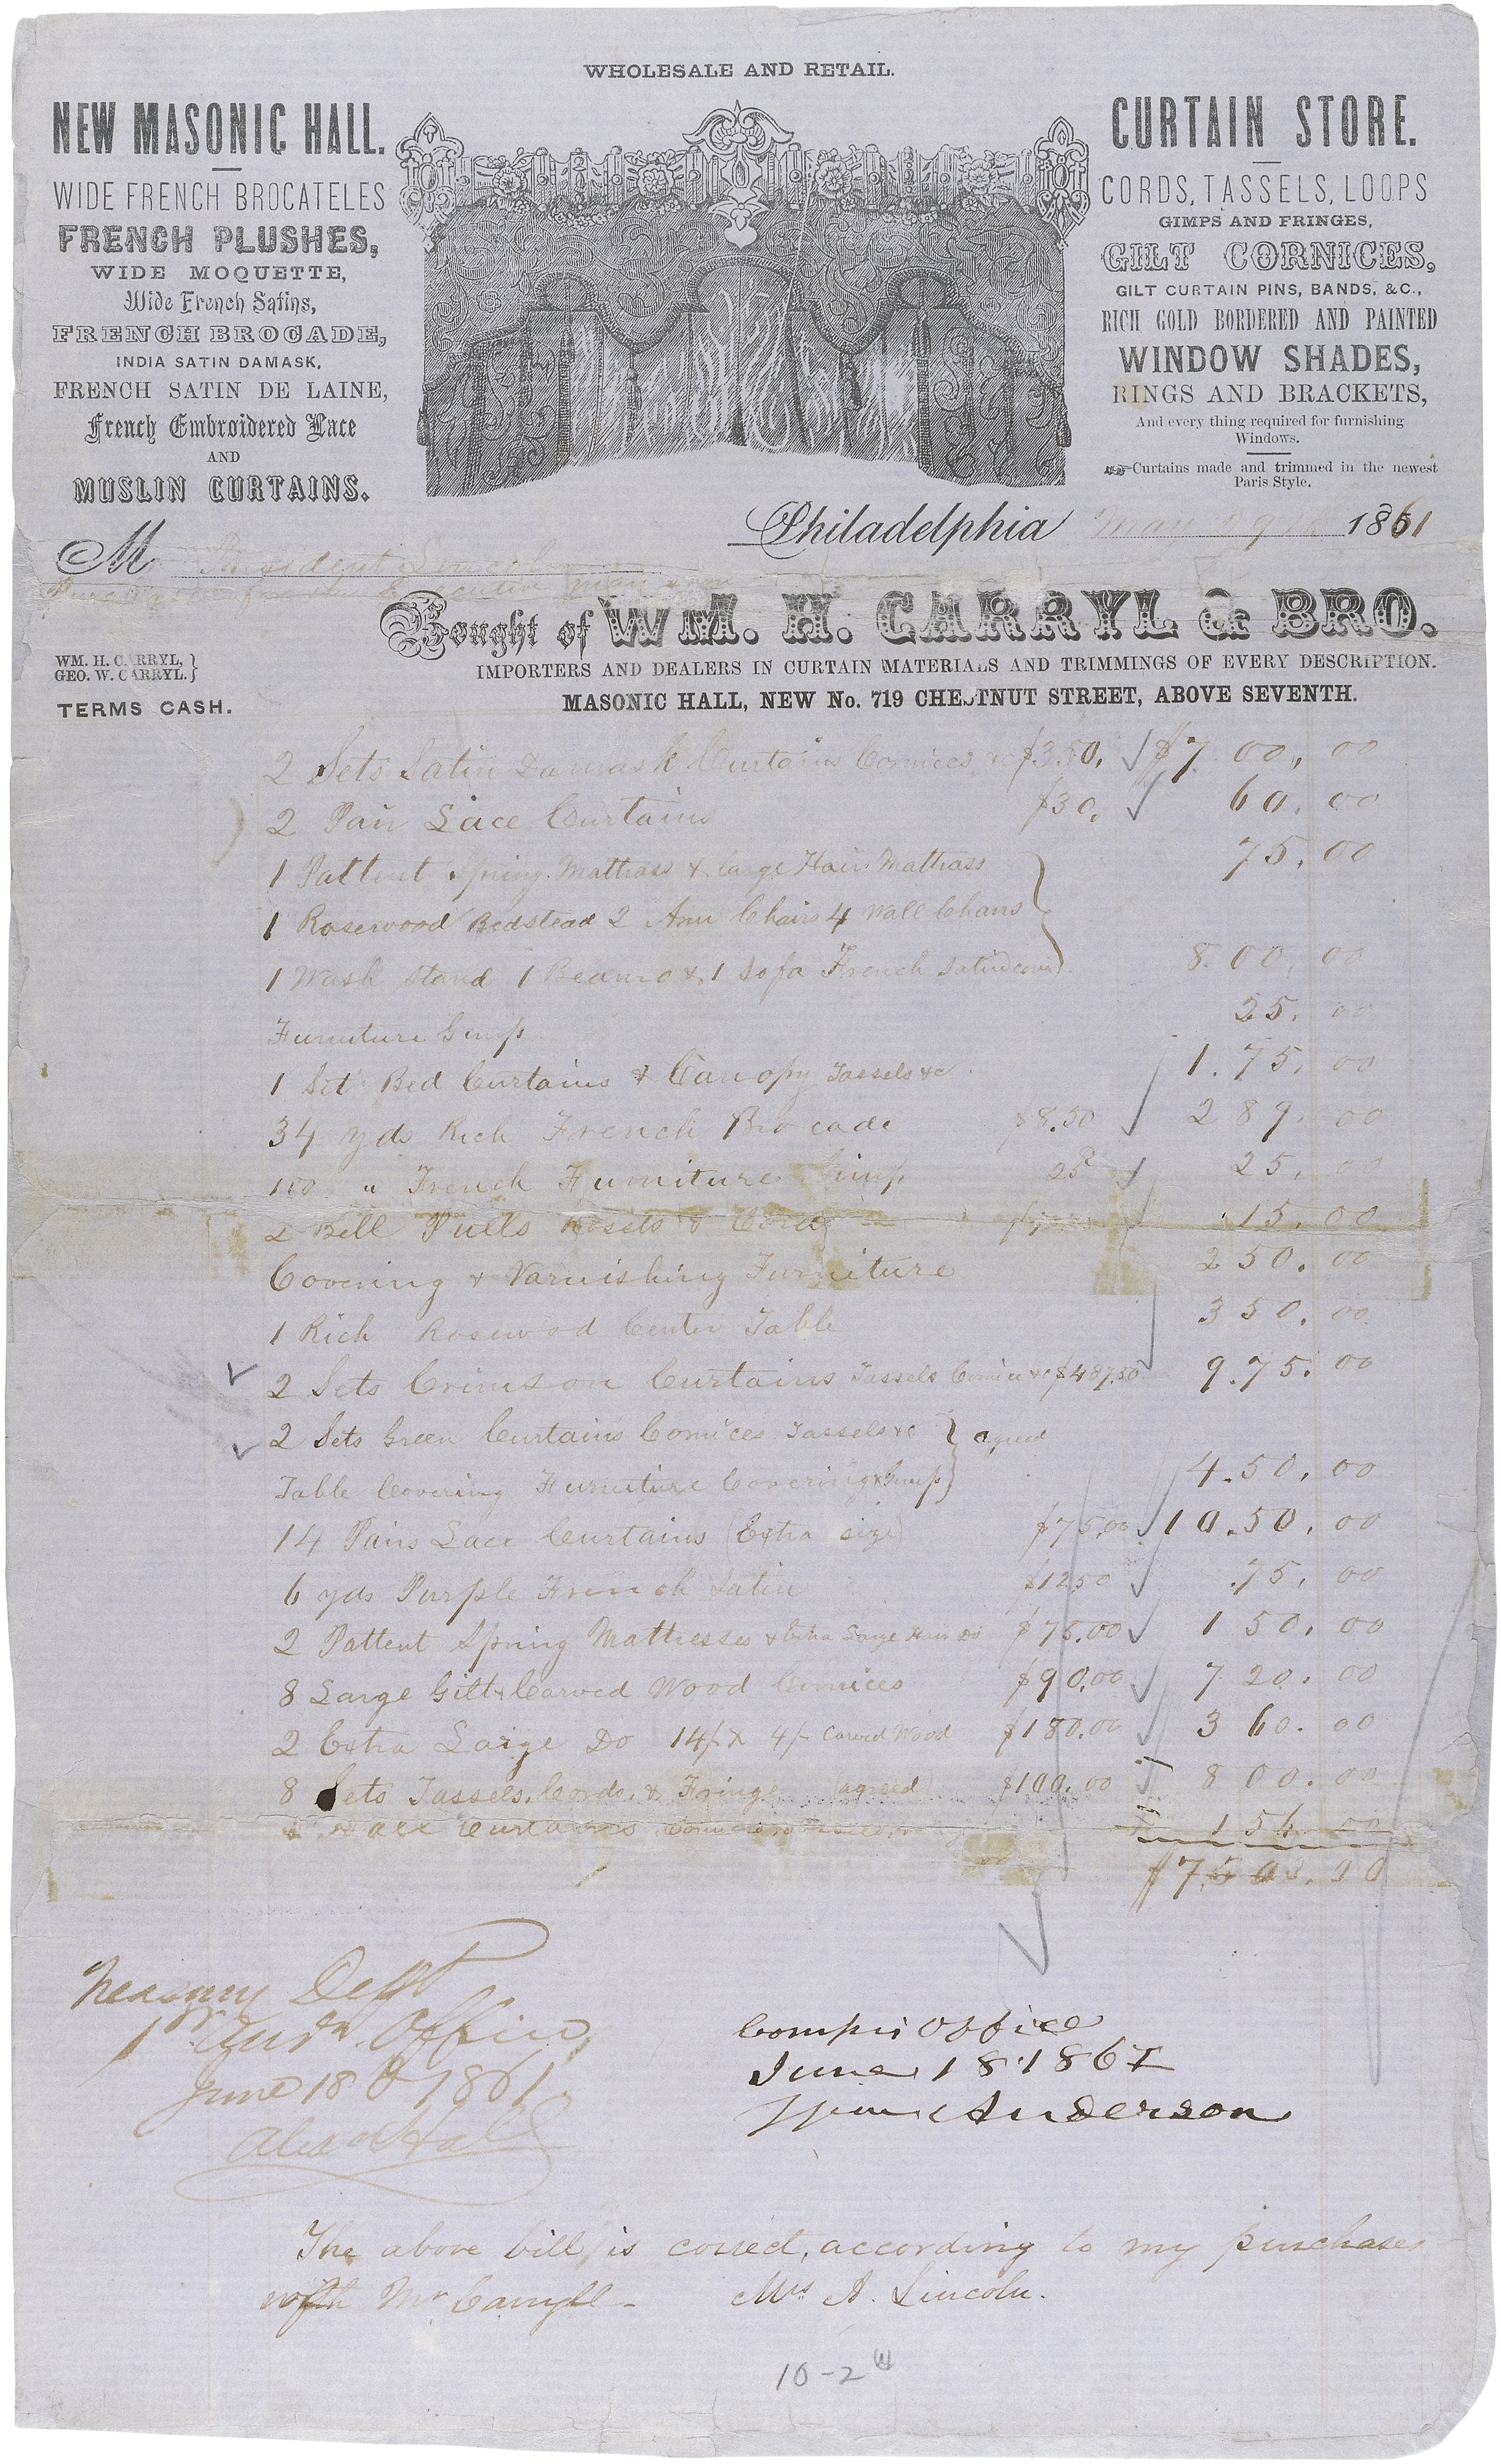 WHOLESALE AND RETAIL.
NEW MASONIC HALL.
WIDE FRENCH BROCATELES
FRENCH PLUSHES,
WIDE MOQUETTE,
Wide French Satins,
FRENCH BROCADE,
INDIA SATIN DAMASK,
FRENCH SATIN DE LAINE,
French Embroidered Lace
AND
MUSLIN CURTAINS.
CURTAIN STORE.
CORDS, TASSELS, LOOPS
GIMPS AND FRINGES,
GILT CORNICES,
GILT CURTAIN PINS, BANDS, &C.,
RICH GOLD BORDERED AND PAINTED
WINDOW SHADES,
RINGS AND BRACKETS,
And every thing required for furnishing
Windows.
Curtains made and trimmed in the newest
Paris Style.
Philadelphia May 29th 1861
M President Lincoln
Purchased for the Executive Mansion
Bought of WM. H. CARRYL & BRO.
WM. H. CARRYL, }
GEO. W. CARRYL. }
IMPORTERS AND DEALERS IN CURTAIN MATERIALS AND TRIMMINGS OF EVERY DESCRIPTION.
TERMS CASH.
MASONIC HALL, NEW No. 719 CHESTNUT STREET, ABOVE SEVENTH.
2 Sets Satin Damask Curtains Cornices &c $350. $700.00
2 Pair Lace Curtains $30. 60.00
1 Pattent Spring Mattrass & large Hair Mattrass 75.00
1 Rosewood Bedstead 2 Arm Chairs 4 Wall Chairs
1 Wash Stand 1 Beauro & 1 Sofa French Satin 800.00
Furniture Gimp 25.00
1 Set Bed Curtains & Canopy Tassels &c. 175.00
34 yds Rich French Brocade $8.50 289.00
100 " French Furniture Gimp 25 25.00
2 Bell Pulls Rosets & Cord 15.00
Covering & Varnishing Furniture 250.00
1 Rich Rosewood Center Table 350.00
2 Sets Crimson Curtains Tassels Cornice &c $487.50 975.00
2 Sets Green Curtains Cornices Tassels &c } agreed
Table Covering Furniture Covering & Gimp } 450.00
14 Pairs Lace Curtains (Extra size) $75.00 1050.00
6 yds Purple French Satin $12.50 75.00
2 Pattent Spring Mattresses & Extra Large Hair Do $75.00 150.00
8 Large Gilt & Carved Wood Cornices $90.00 720.00
2 Extra Large Do 14/- X 4/- Carved Wood $180.00 360.00
8 Sets Tassels, Cords, & Fringe (agreed) $100.00 800.00
Curtains
Treasury Dept
1st Audr. Office,
June 18th 1861.
Compr's Office
June 18 1861
Anderson
The above bill is correct, according to my purchases
with Mr Carryll - Mrs A. Lincoln.
10-2